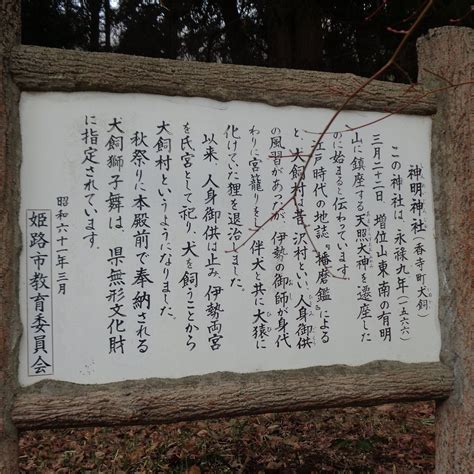 神明神社（香寺町犬飼）
この神社は、永禄九年（一五六六）
三月二十二日、増位山東南の有明
山に鎮座する天照大神を遷座した
のに始まると伝わっています。
江戸時代の地誌『播磨鑑』による
と、犬飼村は昔沢村といい、人身御供
の風習があったが、伊勢の御師が身代
わりに宮籠りをし、伴犬と共に大猿に
化けていた狸を退治しました。
以来、人身御供は止み、伊勢両宮
を氏宮として祀り、犬を飼うことから
犬飼村というようになりました。
秋祭りに本殿前で奉納される
犬飼獅子舞は、県無形文化財
に指定されています。
昭和六十一年三月
姫路市教育委員会